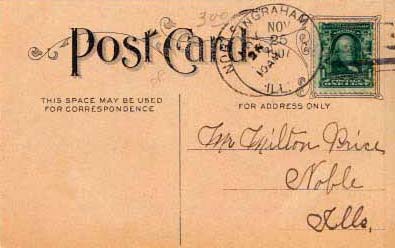 300
Post Card.
INGRAHAM,
NOV
25
ILL.
THIS SPACE MAY BE USED
FOR CORRESPONDENCE
FOR ADDRESS ONLY
Mr Milton Price
Noble
Ills.